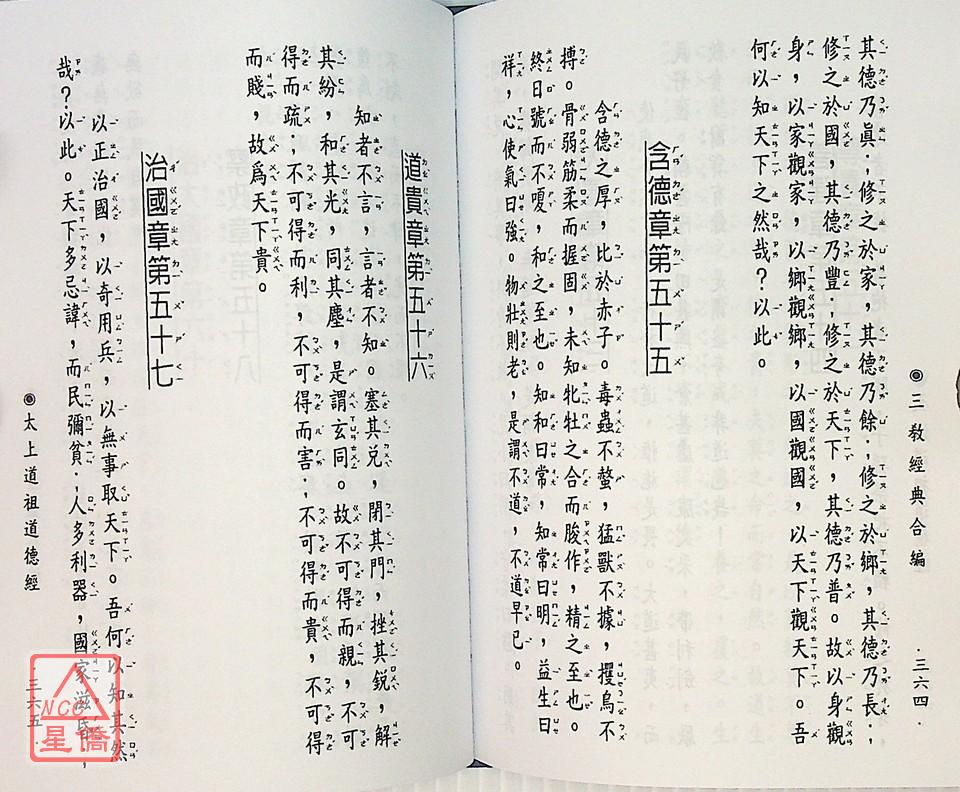 三教經典合編
．三六四．
其德乃眞；修之於家，其德乃餘；修之於鄉，其德乃長；
修之於國，其德乃豐；修之於天下，其德乃普。故以身觀
身，以家觀家，以鄉觀鄉，以國觀國，以天下觀天下。吾
何以知天下之然哉？以此。
含德章第五十五
含德之厚，比於赤子。毒蟲不螫，猛獸不據，攫鳥不
搏。骨弱筋柔而握固，未知牝牡之合而朘作，精之至也。
終日號而不嗄，和之至也。知和曰常，知常曰明，益生曰
祥，心使氣曰強。物壯則老，是謂不道，不道早已。
道貴章第五十六
知者不言，言者不知。塞其兌，閉其門，挫其銳，解
其紛，和其光，同其塵，是謂玄同。故不可得而親，不可
得而疏；不可得而利，不可得而害；不可得而貴，不可得
而賤，故爲天下貴。
治國章第五十七
以正治國，以奇用兵，以無事取天下。吾何以知其然
哉？以此。天下多忌諱，而民彌貧；人多利器，國家滋昏；
太上道祖道德經
．三六五．
NCC
星僑